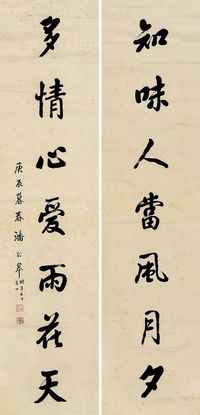 知味人當風月夕
多情心愛雨花天
庚辰暮春潘公皋